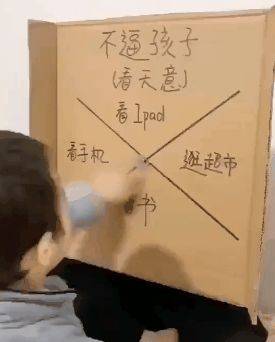 不逼孩子
(看天意)
看Ipad
看手机
逛超市
书